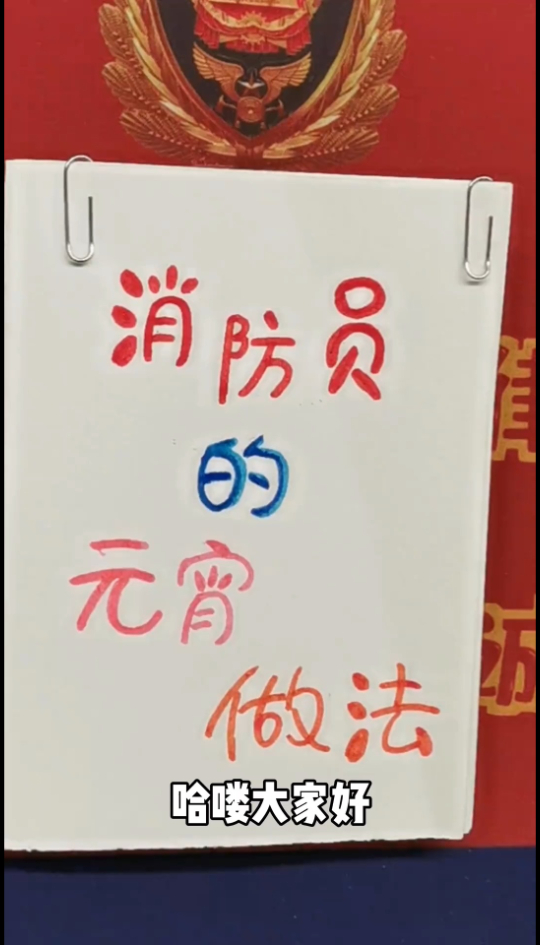 消防员
的
元宵
做法
哈喽大家好